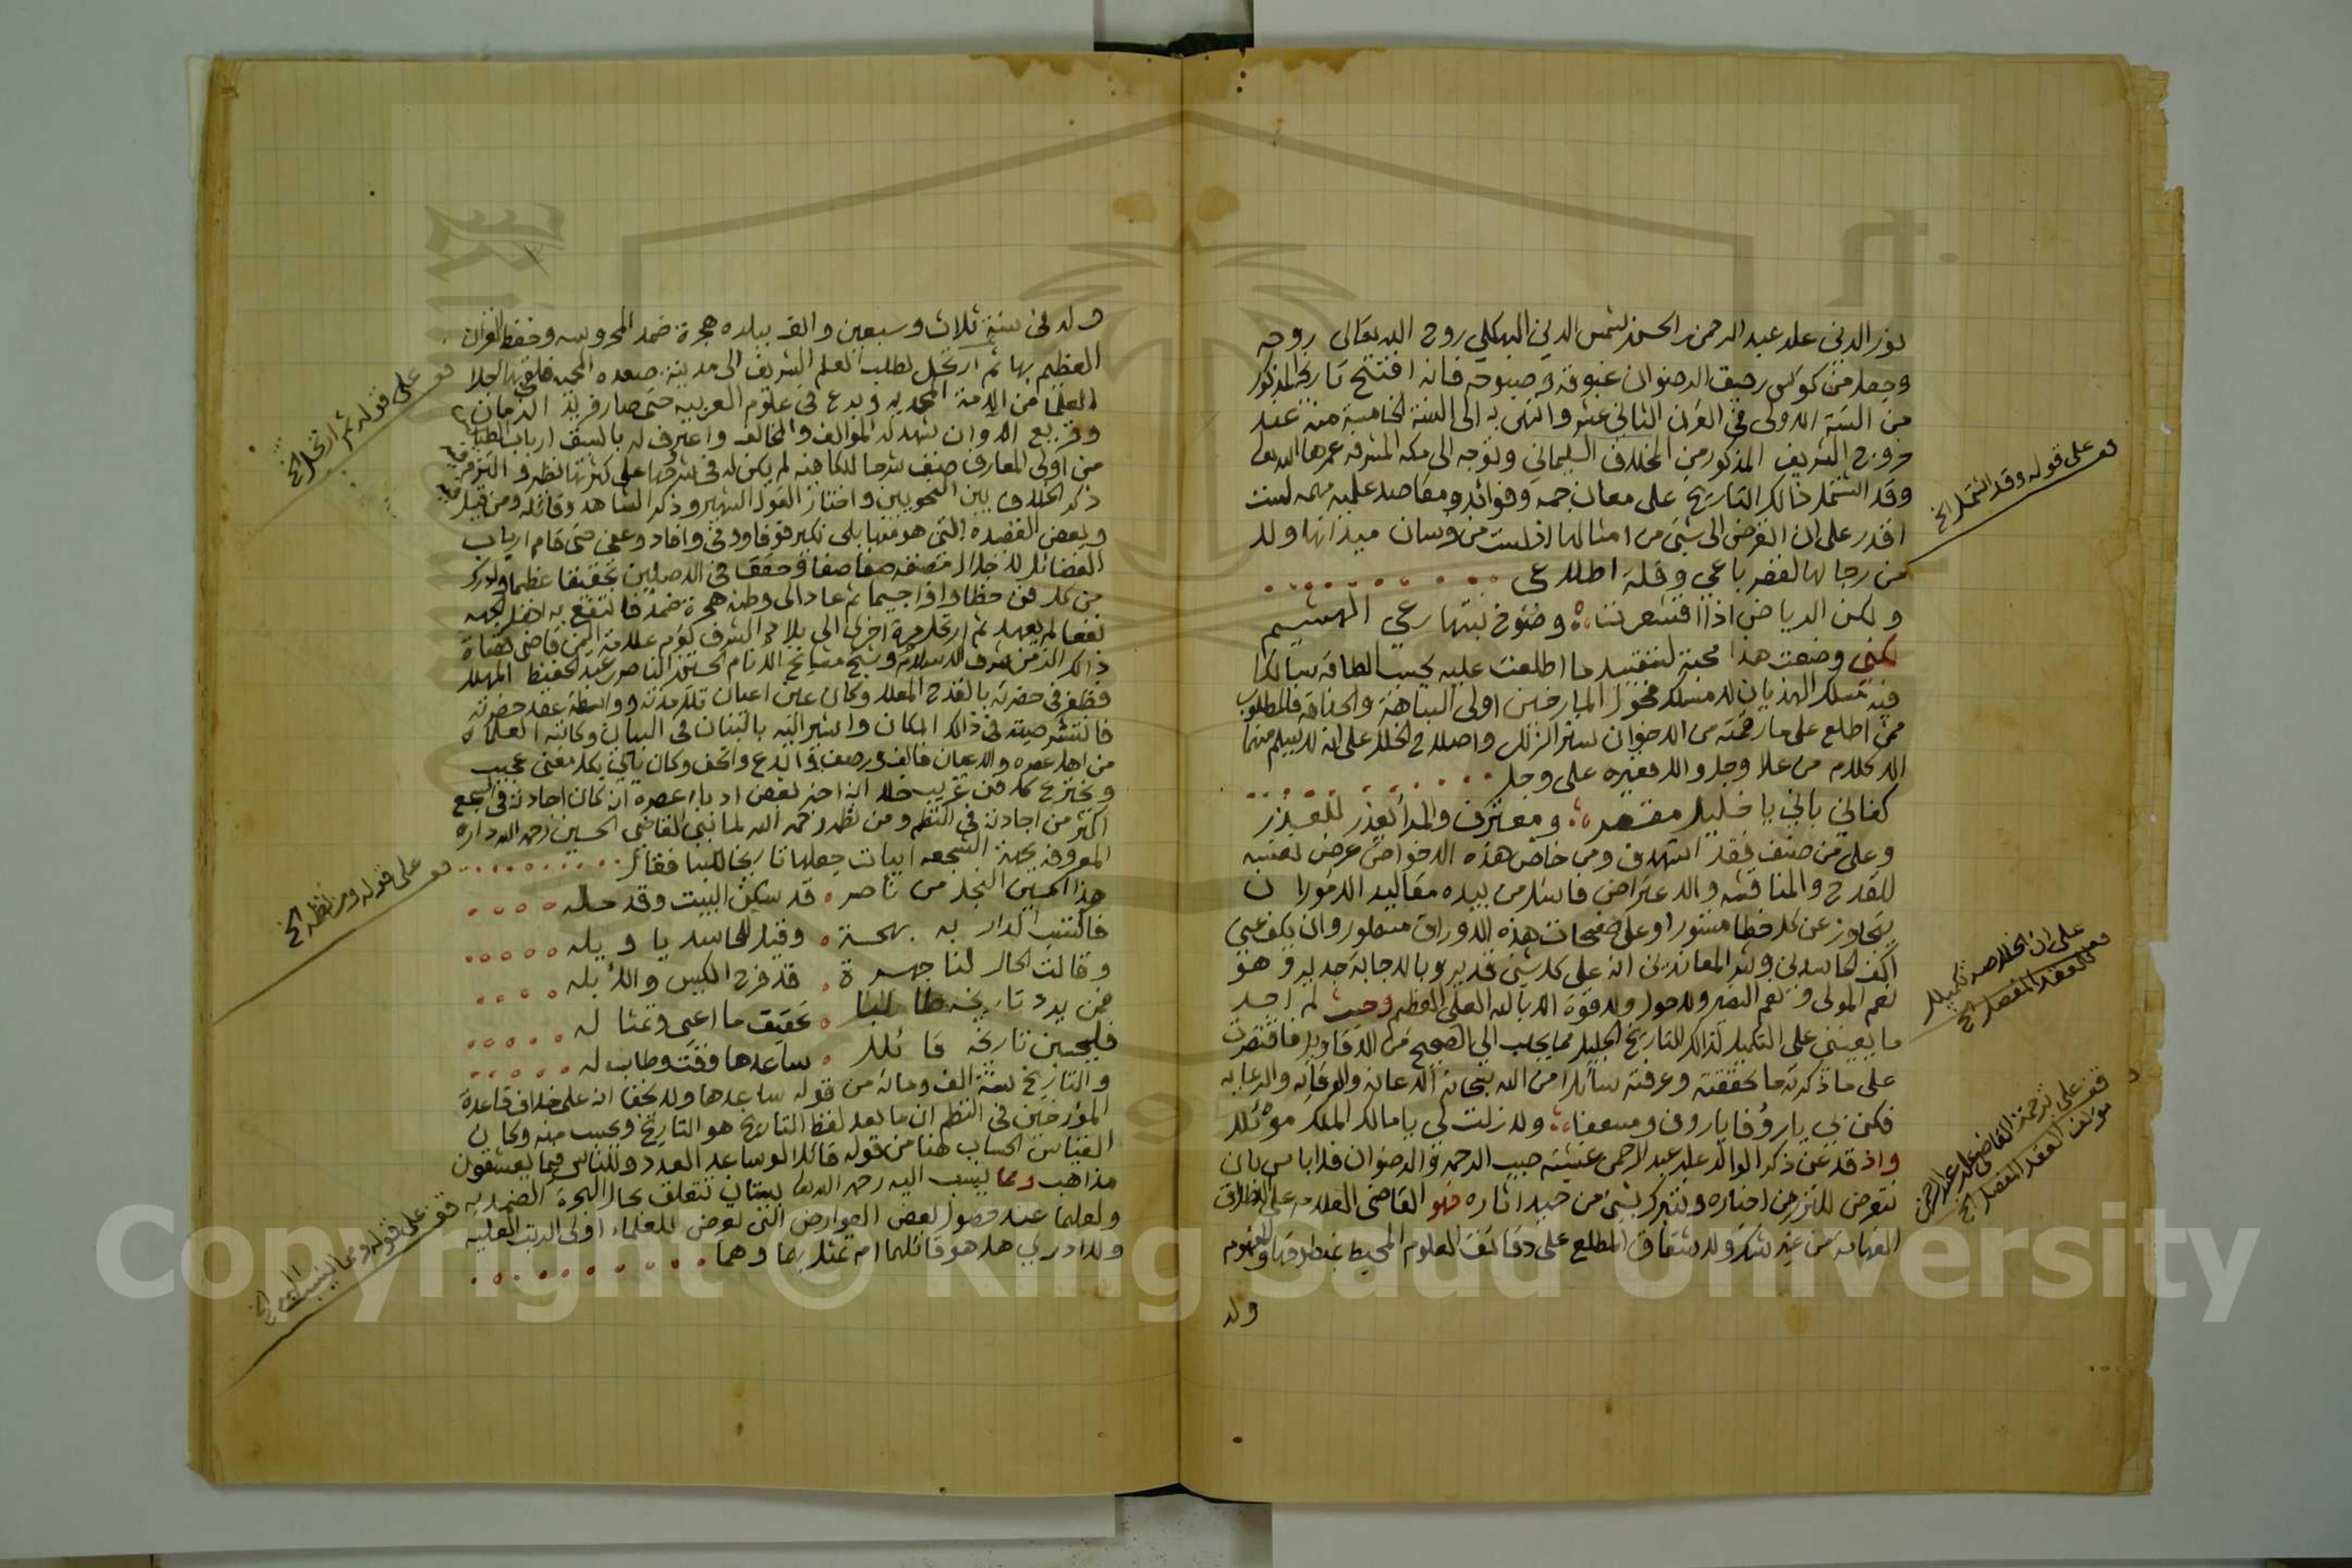 نور الدين علي عبد الرحمن الحسن شمس الدين البهكلي روح الله تعالى روحه
وجعل من كؤس رحيق الرضوان غبوقه وصبوحه فانه افتتح تاريخه المذكور
من السنة الاولى في القرن الثاني عشر وانتهى به الى السنة الخامسة منه عند
خروج الشريف المذكور من المخلاف السليماني وتوجه الى مكه المشرفه عمرها الله تعالى
وقد اشتمل ذالك التاريخ على معان جمه وفوائد ومقاصد علميه مهمه لست
اقدر على ان انعرض الى شيئ من امثالها اذ لست من فرسان ميدانها ولا
من رجالها لقصر باعي وقلة اطلاعي
ولكن الرياض اذا اقشعرت وضوح نبتها رعي الهشيم
لكني وضعت هذا محبة لتقييد ما اطلعت عليه بحسب الطاقه سالكا
فيه مسلك الهذيان لا مسلك فحول المارخين اولى النباهة والحذاقه فالمطلوب
ممن اطلع على ما رقمته من الاخوان ستر الزلل واصلاح الخلل على انه لا يسلم منهما
الا كلام من علا وجل والا فغيره على وجل
كفاني باني يا خليل مقصر ومعترف والمرأ يعذر للعذر
وعلى من صنف فقد استهدف ومن خاض هذه الاخواض عرض نفسه
للقدح والمناقشه والاعتراض فاسئل من بيده مقاليد الامور ان
يتجاوز عن كل خطا مستورا وعلى صفحات هذه الاوراق مسطور وان يكف عني
اكف الحاسدين وشر المعاندين انه على كل شئ قدير وبالاجابة جدير وهو
نعم المولى ونعم النصير ولا حول ولا قوة الا بالله العلي العظيم وحيث لم اجد
ما يعينني على التكميل لذالك التاريخ الجليل مما يجلب الي الصحيح من الاقاويل فاقتصرت
على ما ذكرته ما تحققته وعرفته سائلا من الله سبحانه الاعانه والوقايه والرعايه
فكن بي يا رؤفا يا روف ومسعفا ولا زلت لي يا مالك الملك موئلا
واذ قد عن ذكر الوالد علي عبد الرحمن غشيته صيب الرحمه والرضوان فلا باس بان
نتعرض للنزر من اخباره ونتبرك بشئ من حميد اثاره فهو القاضي العلامه على الاطلاق
الفهامه من غير شك ولا شقاق المطلع على دقائق العلوم المحيط بمنطوقها والمفهوم
ولد
قف على قوله وقد اشتمل الخ
على ان الخلاصه تكميل
العقد المفصل الخ
قف على ترجمة القاضي علي عبد الرحمن
مؤلف العقد المفصل الخ
ولد في سنة ثلاث وسبعين والف ببلده هجرة ضمد المحروسه وحفظ القران
العظيم بها ثم ارتحل لطلب العلم الشريف الى مدينة صعده المحميه فلقي بها اجلا
العلما من الامة المحمديه وبدع في علوم العربيه حتى صار فريد الزمان
وقريع الاوان شهد له الموالف والمخالف واعترف له بالسبق ارباب
من اولى المعارف صنف شرحا للكافيه لم يكن له في شروحها على كثرتها نظير
ذكر الخلاف بين النحويين واختار القول الشهير وذكر الشاهد وقائله ومن قيل
وبعض القصيده التي هو منها بلى نكير فوفا وافاد وعني حتى قام ارباب
من كل فن حظا وافرا جسيما ثم عاد الى وطنه هجرة ضمد فانتفع به
نفعا لم يعهد ثم ارتحل مرة اخرى الى بلاد الشرف كؤم علامة اليمن قاضي قضاة
ذالك الزمن شرف الاسلام وشيخ مشايخ الانام الحسين الناصر عبد الحفيظ المهلا
فظفر في حضرته بالقدح المعلا وكان عين اعيان تلامذته وواسطة عقد حضرته
فانتشر صيته في ذالك المكان واشير اليه بالبنان في البيان وكاتبه العلماء
من اهل عصره والاعيان فالف ورصف وابدع واتحف وكان ياتي بكل معنى عجيب
ويخترع كل فن غريب خلا انه اخبر بعض ادباء عصره انه كان اجادته في السجع
اكثر من اجادته في النظم ومن نظمه رحمه الله لما بنى القاضي الحسين رحمه الله داره
المعروفه بجهة الشجعه ابيات جعلها تاريخا للبنا فقال
هذا الحسين النجل من ناصر قد سكن البيت وقد حله
فاكتب الدار به بهجة وقيل للحاسد يا ويله
وقالت الحال لنا جهرة قد فرح الكيس والابله
فمن يرد تاريخه طالبا عقيق ما اعيى وعنا له
فليحسبن تاريخه قائلا ساعدها وقت وطاب له
والتاريخ سنة الف ومائة من قوله ساعدها ولا يخفا انه على خلاف قاعدة
المؤرخين في النظم ان ما بعد لفظ التاريخ هو التاريخ ويحسب منه وكان
القياس الحساب هنا من قوله قائلا لو ساعد العدد وللناس فيما يعشقون
مذاهب ومما ينسب اليه رحمه الله تعالى بيتان تتعلق بحال الهجرة الضمديه
ولعلهما عند حصول بعض العوارض التي تعرض للعلماء اولى الرتب العليه
ولا ادري هل هو قائلهما ام تمثل بهما وهما
قف على قوله ثم ارتحل الخ
قف على قوله ومن نظمه الخ
قف على قوله ومما ينسب اليه الخ
Copyright © King Saud University
1957